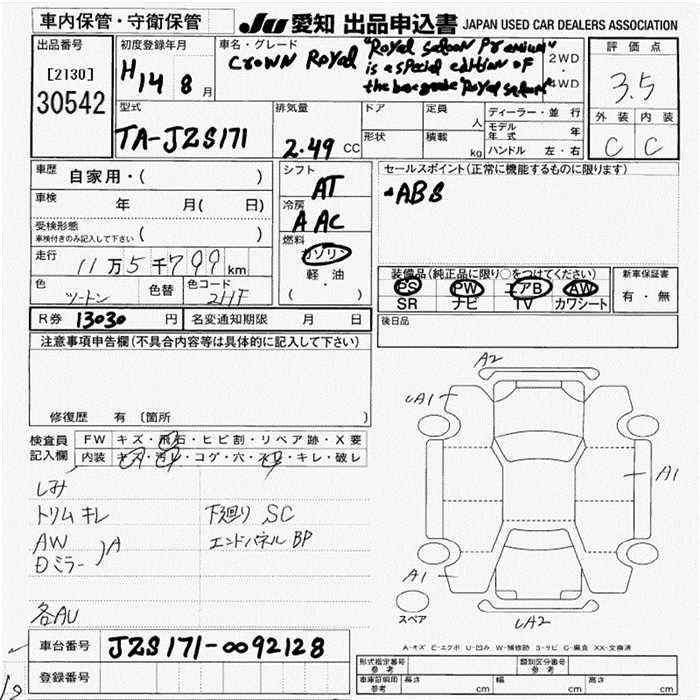 車内保管・守衛保管
JU 愛知 出品申込書 JAPAN USED CAR DEALERS ASSOCIATION
出品番号
[2130]
30542
初度登録年月
H14 8月
車名・グレード
CROWN Royal
"Royal Saloon Premium"
is a special edition of
the
"Royal Saloon"
2WD
4WD
評価点
3.5
外装 内装
C C
型式
TA-JZS171
排気量
2.49 CC
ドア
形状
定員 人
積載 kg
ディーラー・並行
モデル年式 年
ハンドル 左・右
車歴
自家用・( )
車検 年 月( 日)
受検形態
車検付きのみ記入して下さい ( )
走行
11万5千799km
色 ツートン
色替
色コード 2HF
シフト
AT
冷房
AAC
燃料
ガソリン
軽・油
( ・ )
セールスポイント(正常に機能するものに限ります)
・ABS
装備品(純正品に限り○をつけてください)
PS PW エアB AW
SR ナビ TV カワシート
新車保証書
有・無
後日品
R券 13030 円
名変通知期限 月 日
注意事項申告欄(不具合内容等は具体的に記入して下さい)
修復歴 有 〔箇所 〕
検査員
記入欄
FW キズ・飛石・ヒビ割・リペア跡・X要
内装 キズ・汚レ・コゲ・穴・スレ・キレ・破レ
しみ
トリムキレ
AW
Dミラー
)A
各AU
下廻り SC
エンドパネル BP
A2
A1
A1
A1
A2
スペア
A-キズ E-エクボ U-凹み W-補修跡 S-サビ C-腐食 XX-交換済
車台番号 JZS171-0092128
登録番号
形式指定番号
参考
類別区分番号
参考
車庫証明用
参考
長さ cm
幅 cm
高さ cm